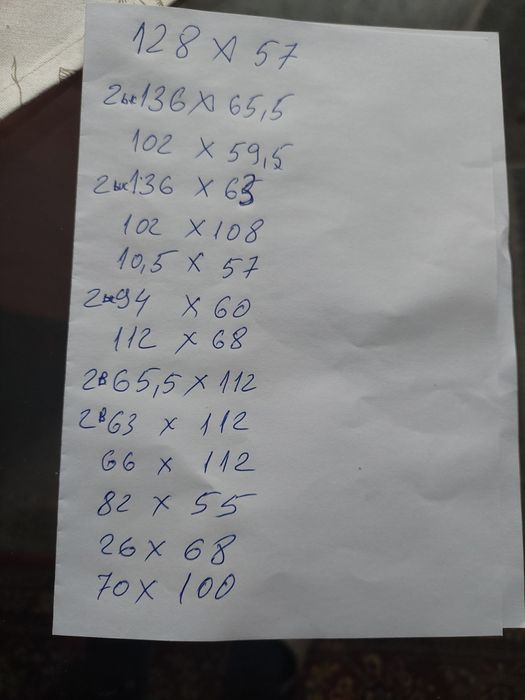 128 x 57
2вх136 x 65,5
102 x 59,5
2вх136 x 63
102 x 108
10,5 x 57
2 94 x 60
112 x 68
2в65,5 x 112
2в63 x 112
66 x 112
82 x 55
26 x 68
70 x 100